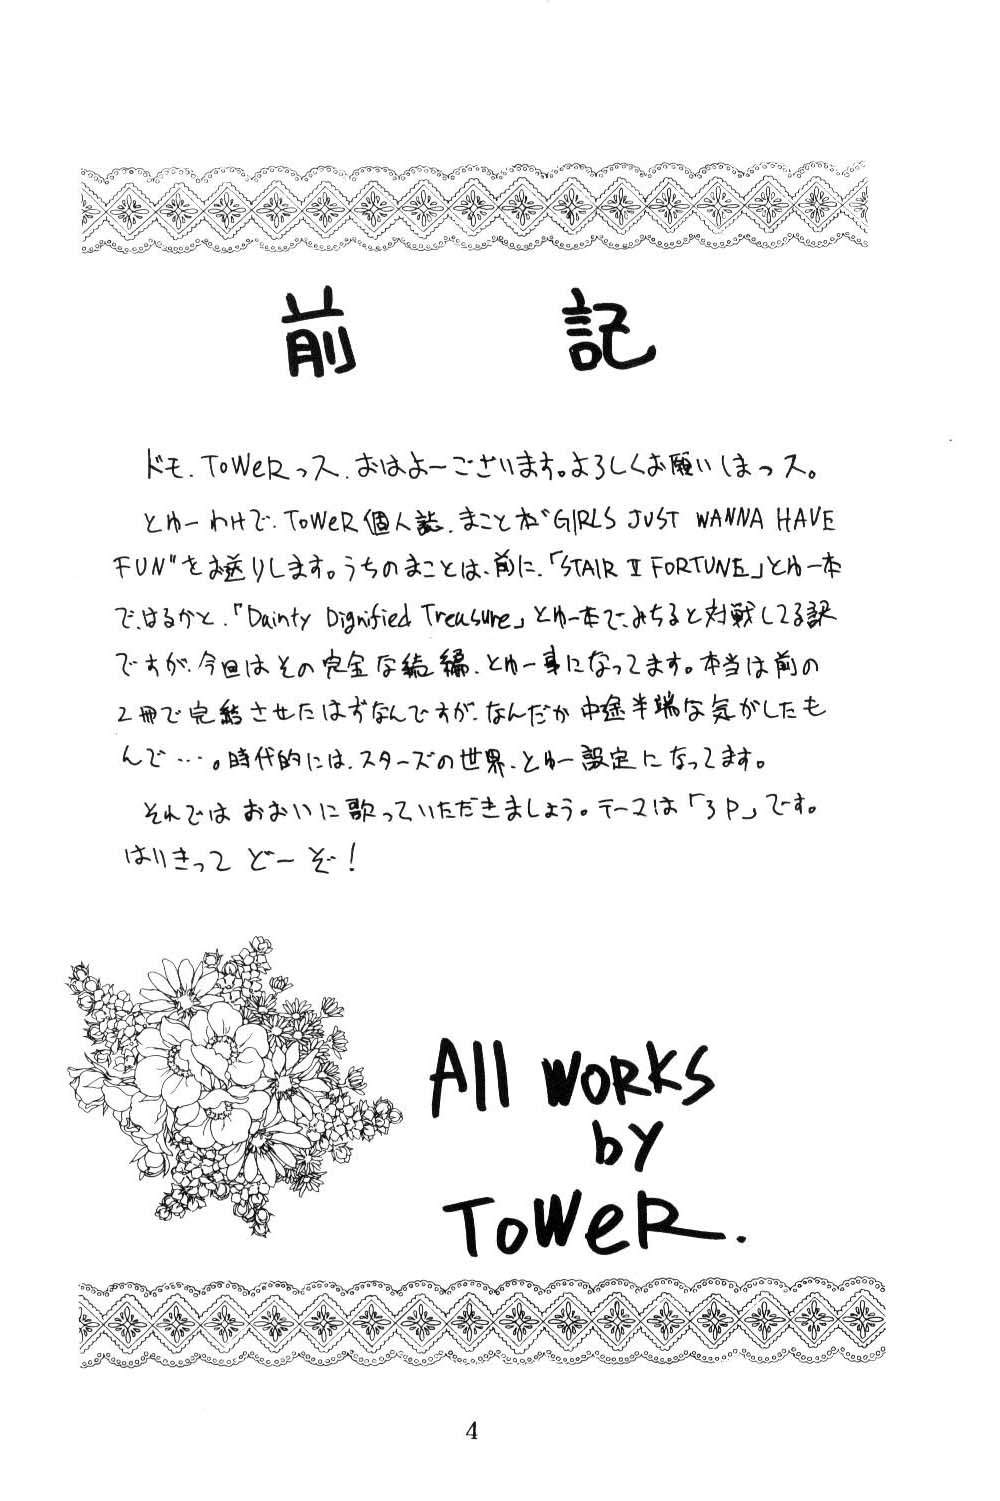 前記
ドモ、ToWeRっス、おはよーございます。よろしくお願いしまっス。
とゆーわけで、ToWeR個人誌、まこと本"GIRLS JUST WANNA HAVE
FUN"をお送りします。うちのまことは、前に、「STAIR II FORTUNE」とゆー本
で、はるかと、「Dainty Dignified Treasure」とゆー本で、みちると対戦してる訳
ですが、今回はその完全な続編、とゆー事になってます。本当は前の
2冊で完結させたはずなんですが、なんだか中途半端な気がしたも
んで…。時代的には、スターズの世界、とゆー設定になってます。
それではおおいに歌っていただきましょう。テーマは「3P」です。
はりきってどーぞ!
All WORKS
by
ToWeR.
4